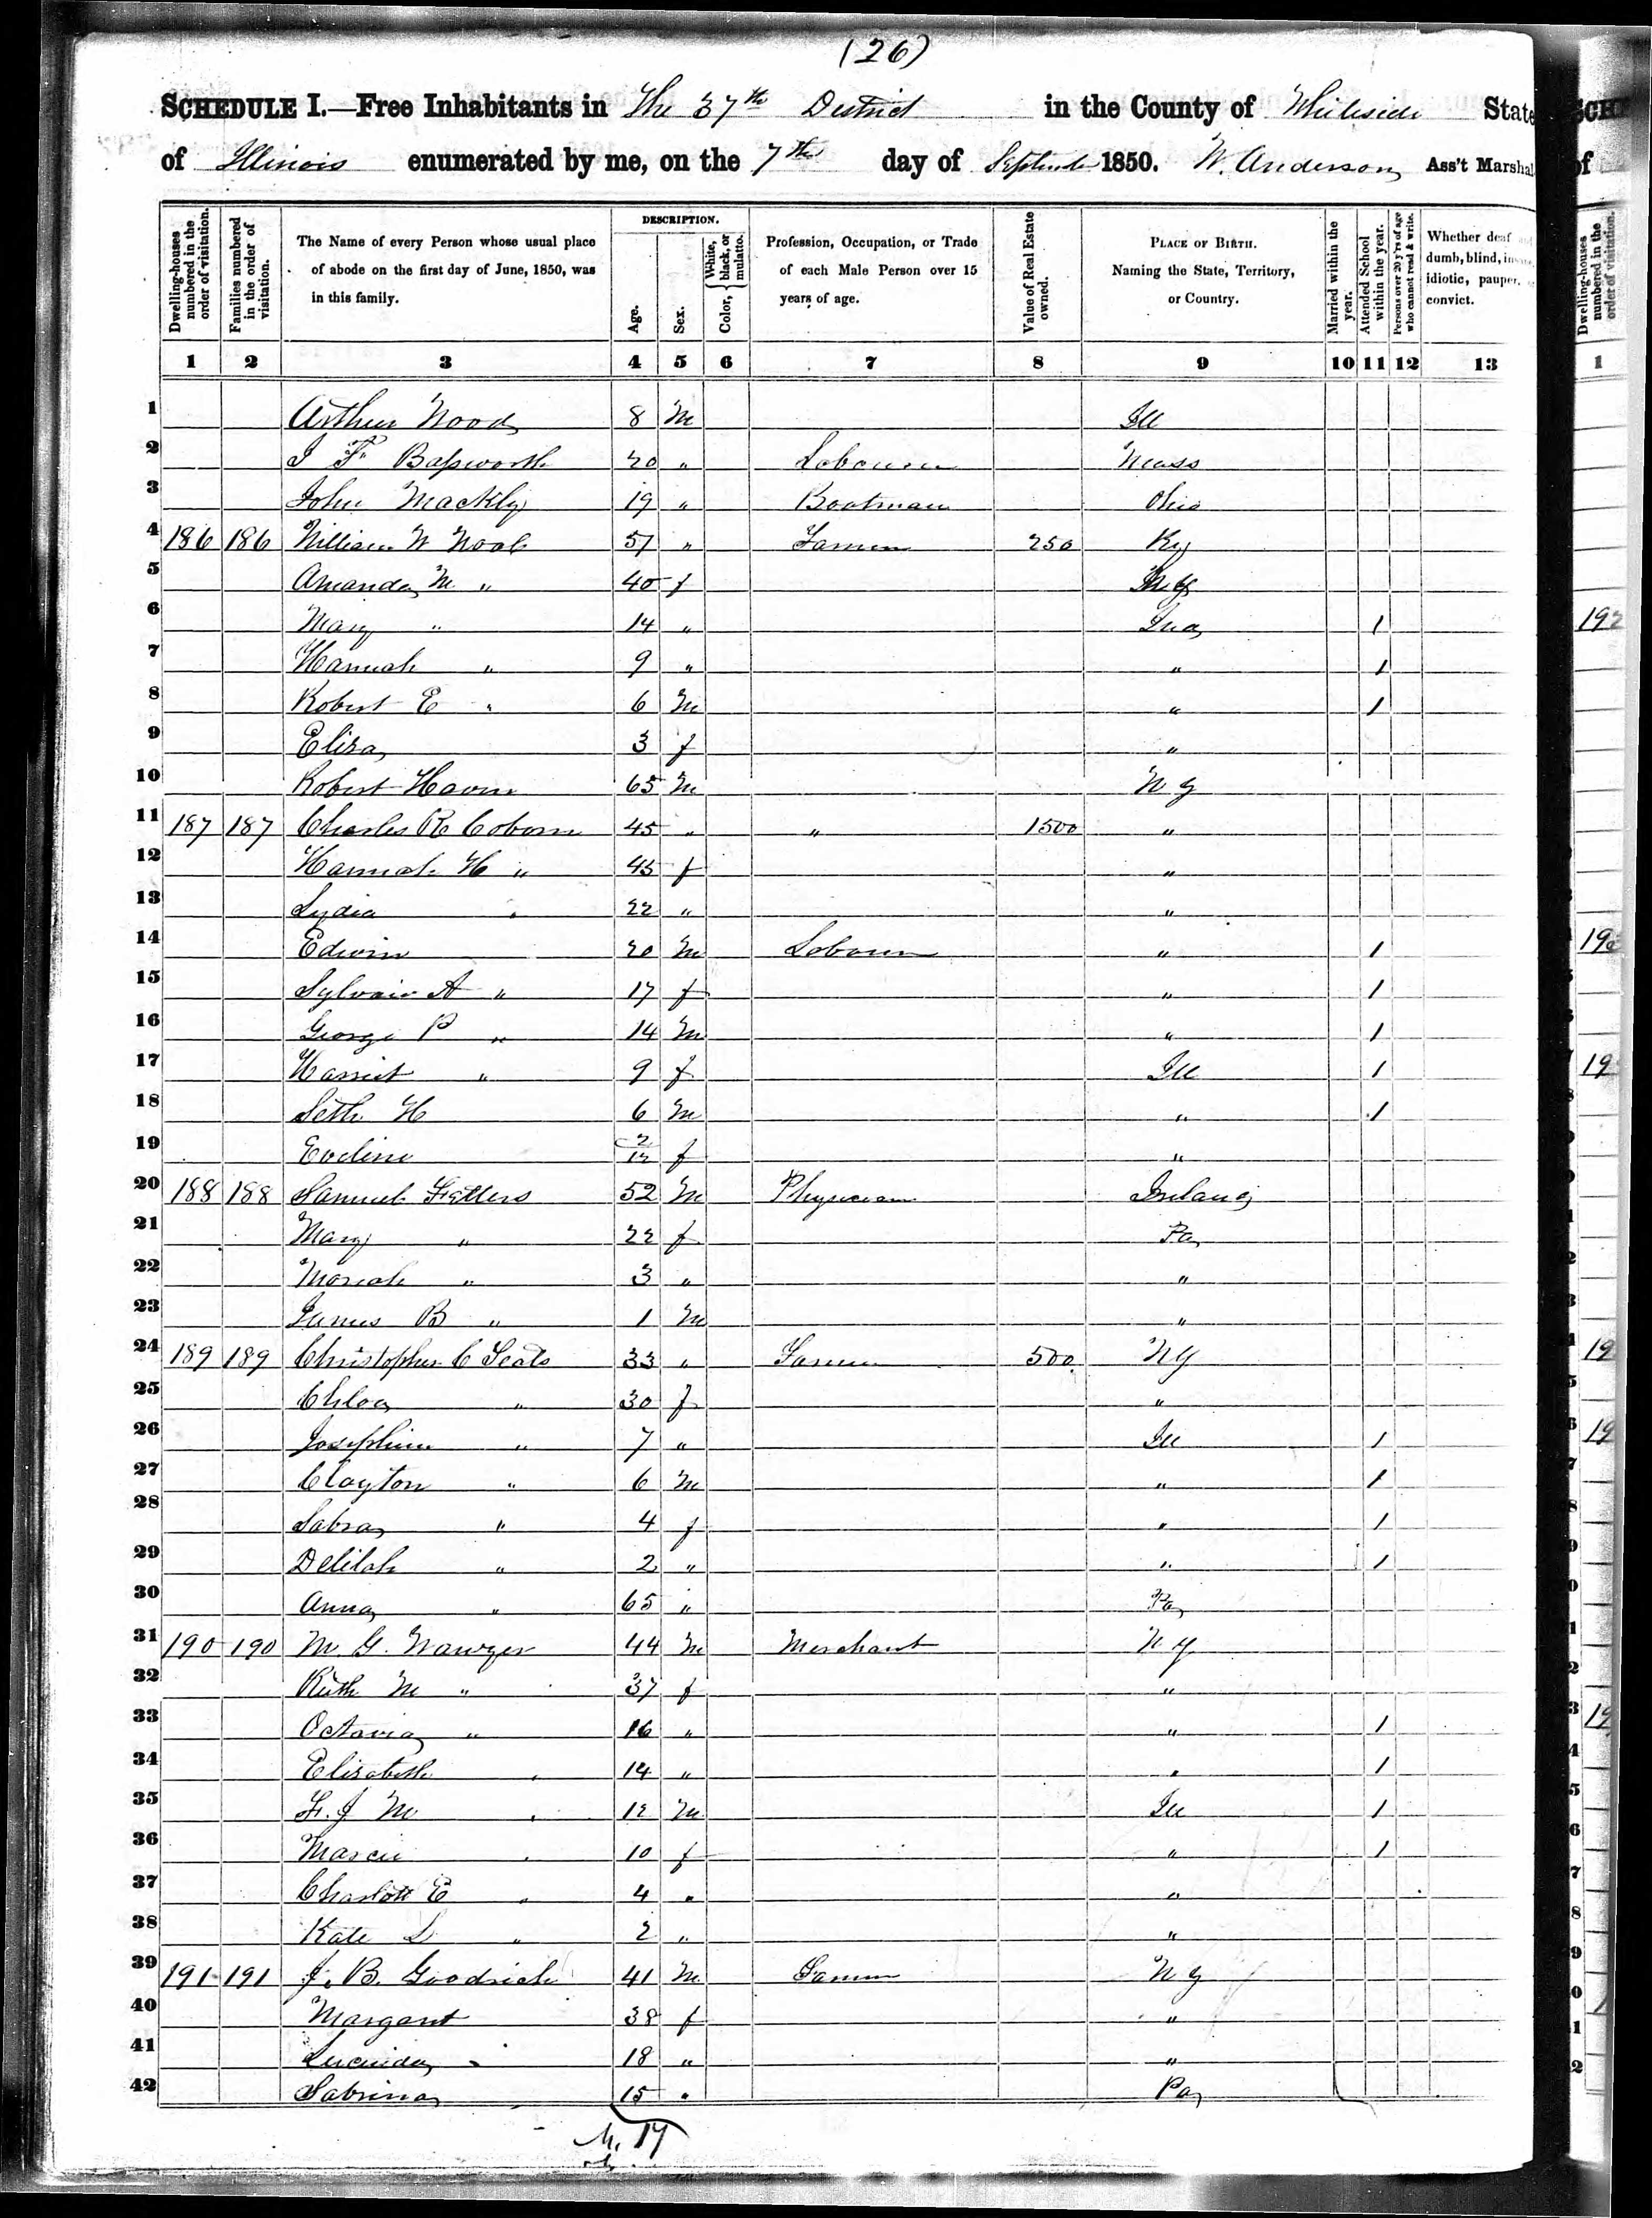 (26)
SCHEDULE I.—Free Inhabitants in The 37th District in the County of Whiteside State
of Illinois enumerated by me, on the 7th day of September 1850. W. Anderson Ass't Marshal
Dwelling-houses numbered in the order of visitation. Families numbered in the order of visitation. The Name of every Person whose usual place of abode on the first day of June, 1850, was in this family. DESCRIPTION. Age. Sex. Color, { White, black, or mulatto. Profession, Occupation, or Trade of each Male Person over 15 years of age. Value of Real Estate owned. PLACE OF BIRTH. Naming the State, Territory, or Country. Married within the year. Attended School within the year. Persons over 20 y'rs of age who cannot read & write. Whether deaf and dumb, blind, insane, idiotic, pauper, or convict.
1 2 3 4 5 6 7 8 9 10 11 12 13
1 Arthur Wood 8 M Ill
2 J F Bassworth 20 " Labourer Mass
3 John Mackly 19 " Boatman Ohio
4 186 186 William W 57 " Farmer 250 Ky
5 Amanda M " 40 f N Y
6 Mary " 14 " Ind 1
7 Hannah " 9 " " 1
8 Robert E " 6 M " 1
9 Eliza 3 f "
10 Robert 65 M N Y
11 187 187 Charles R Coborn 45 " " 1500 "
12 Hannah H " 45 f "
13 Lydia " 22 " "
14 Edwin 20 M Labourer " 1
15 Sylvair A " 17 f " 1
16 George P " 14 M " 1
17 Harriet " 9 f Ill 1
18 Seth H 6 M " 1
19 Eveline 2/12 f "
20 188 188 Samuel Fetters 52 M Physician Ireland
21 Mary " 22 f Pa
22 Mariah " 3 " "
23 James B " 1 M "
24 189 189 Christopher C Seats 33 " Farmer 500 N Y
25 Chloa " 30 f "
26 Josephine " 7 " Ill 1
27 Clayton " 6 M " 1
28 Sabra " 4 f " 1
29 Delilah " 2 " " 1
30 Anna " 65 " Pa
31 190 190 M. G. 44 M Merchant N Y
32 Ruth M " 37 f "
33 Octavia " 16 " " 1
34 Elizabeth " 14 " " 1
35 F. J M " 12 M Ill 1
36 Marcie " 10 f " 1
37 Charlott E " 4 " "
38 Kate D " 2 " "
39 191 191 J. B. Goodrich 41 M Farmer N Y
40 Margaret 38 f "
41 Lucinda " 18 " "
42 Sabrina 15 " Pa
M. 17